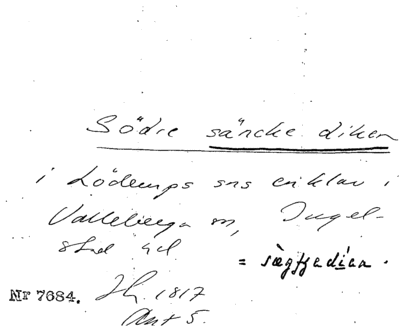 Södre säncke diken
i Löderups sns enklav i
Valleberga sn, Ingel-
stad hd
= sægfjedian.
Nr 7684. Jh. 1817
Akt 5.